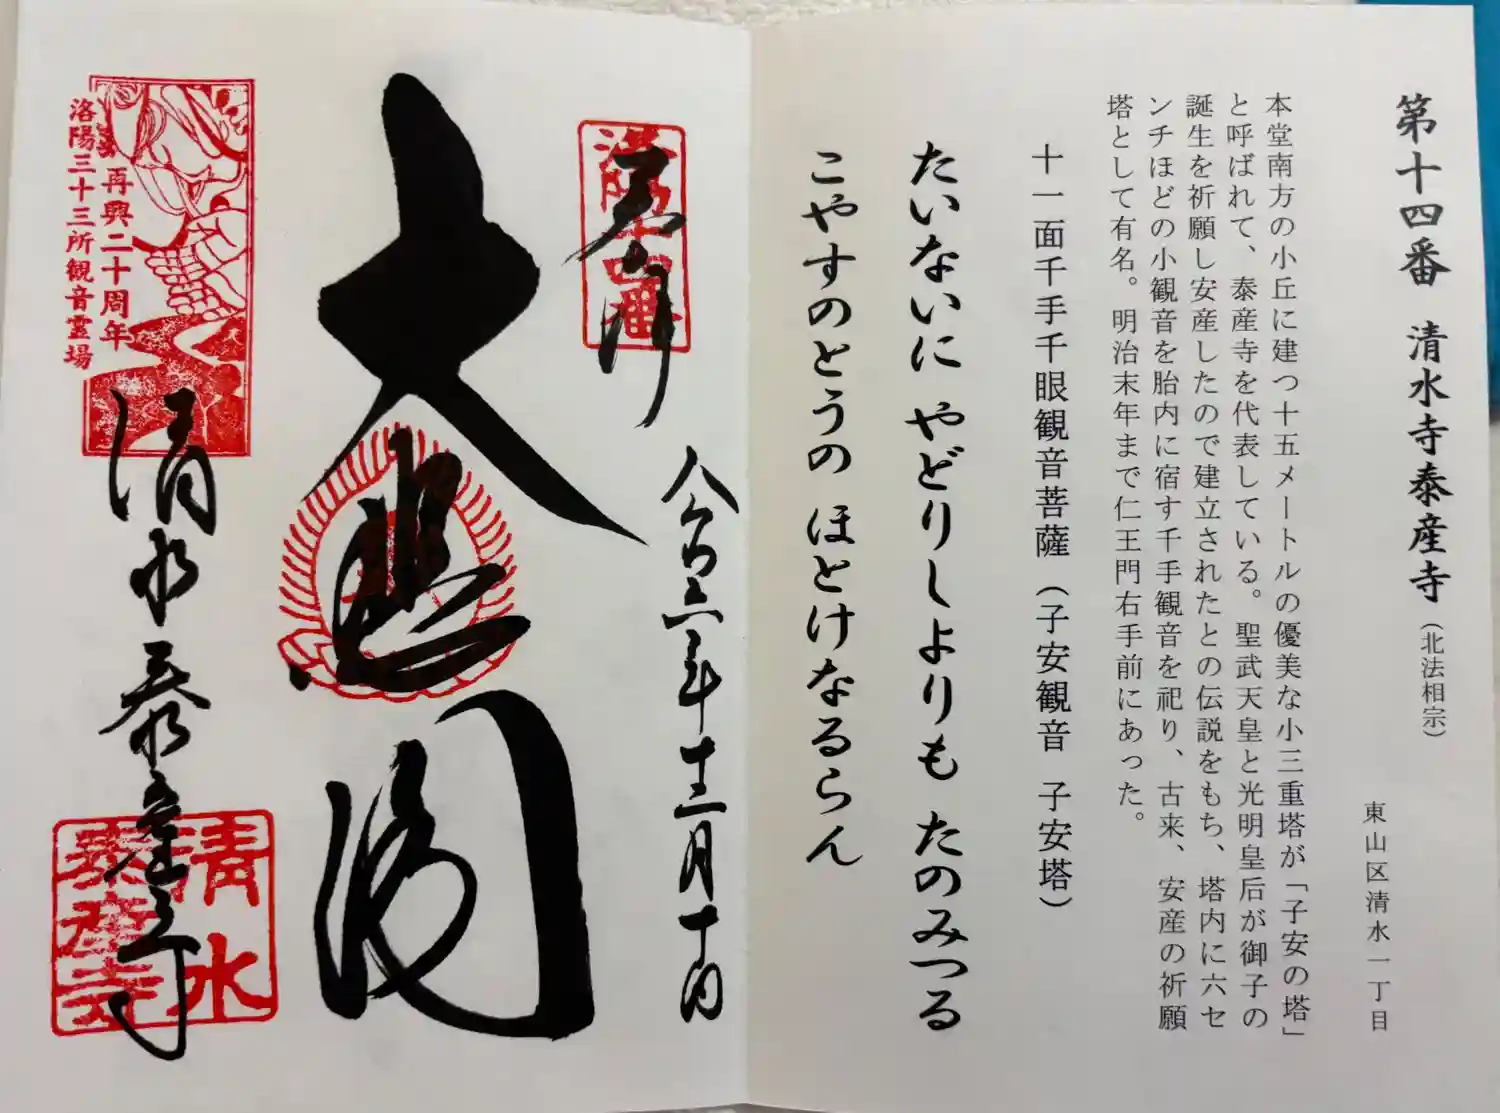 第十四番 清水寺泰産寺（北法相宗）
東山区清水一丁目
本堂南方の小丘に建つ十五メートルの優美な小三重塔が「子安の塔」
と呼ばれて、泰産寺を代表している。聖武天皇と光明皇后が御子の
誕生を祈願し安産したので建立されたとの伝説をもち、塔内に六セ
ンチほどの小観音を胎内に宿す千手観音を祀り、古来、安産の祈願
塔として有名。明治末年まで仁王門右手前にあった。
十一面千手千眼観音菩薩（子安観音 子安塔）
たいないに やどりしよりも たのみつる
こやすのとうの ほとけなるらん
洛陽十四番
奉拝
令和六年十二月十日
大悲閣
再興二十周年
洛陽三十三所観音霊場
清水泰産寺
清水
泰産寺